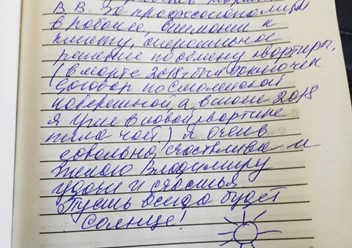 В.В. За профессионализм
в работе, внимании к
клиенту, оперативное
решение по обмену квартиры,
(в марте 2018 был заключен
договор по Смоленской
набережной, а в июле 2018
я уже в новой квартире
пила чай) я очень
довольна, счастлива и
желаю Владимиру
удачи и счастья
Пусть всегда будет
Солнце!